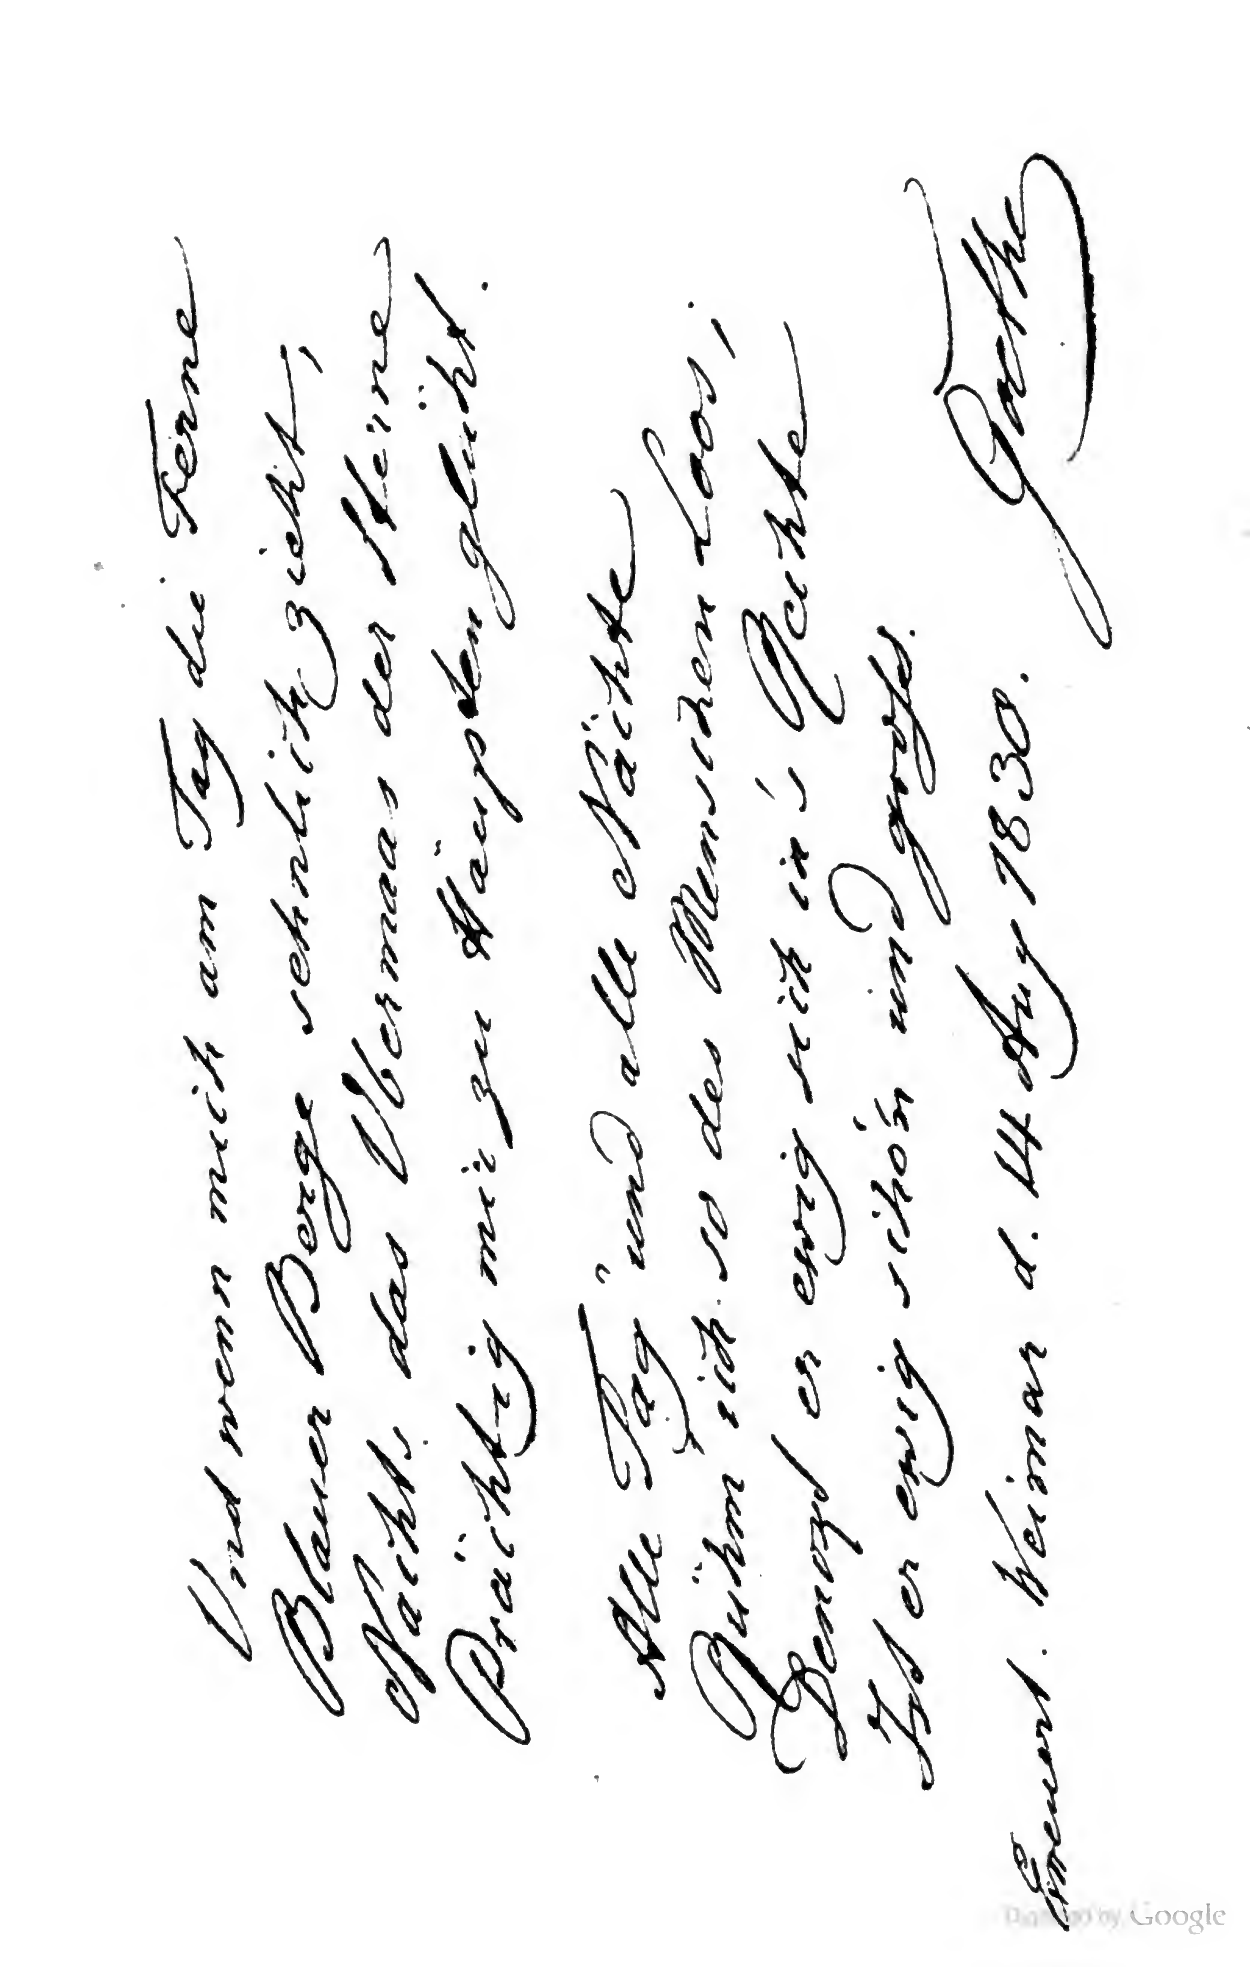 Und wenn mich am Tag die Ferne
Blauer Berge sehnlich zieht,
Nachts, das Übermaas der Sterne
Prächtig mir zu Häupten glüht.
Alle Tag' und alle Nächte
Rühm' ich so des Menschen Loos;
Denckt er ewig sich in's Rechte
Ist er ewig schön und gross.
Erneut. Weimar d. 14 Aug 1830.
Goethe
Digitized by Google